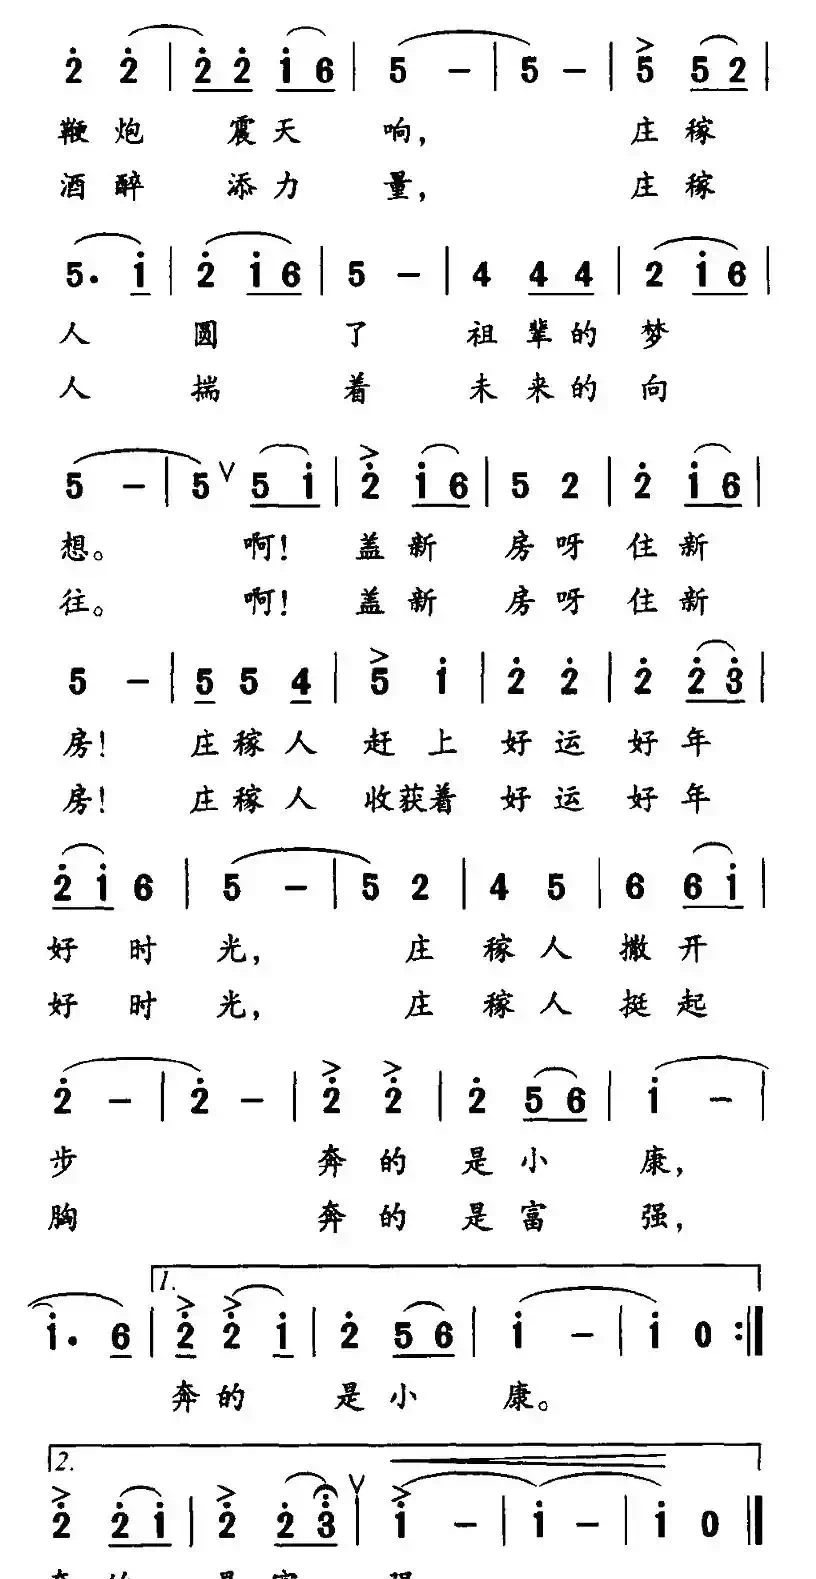 2 2 | 2 2 1 6 | 5 - | 5 - | 5 5 2 |
鞭炮 震天 响, 庄稼
酒醉 添力 量, 庄稼
5. 1 | 2 1 6 | 5 - | 4 4 4 | 2 1 6 |
人 圆 了 祖辈的梦
人 揣 着 未来的向
5 - | 5 ∨ 5 1 | 2 1 6 | 5 2 | 2 1 6 |
想。 啊! 盖新 房呀 住新
往。 啊! 盖新 房呀 住新
5 - | 5 5 4 | 5 1 | 2 2 | 2 2 3 |
房! 庄稼人 赶上 好运 好年
房! 庄稼人 收获着 好运 好年
2 1 6 | 5 - | 5 2 | 4 5 | 6 6 1 |
好时 光, 庄 稼人 撒开
好时 光, 庄 稼人 挺起
2 - | 2 - | 2 2 | 2 5 6 | 1 - |
步 奔的 是小 康,
胸 奔的 是富 强,
1.
1. 6 | 2 2 1 | 2 5 6 | 1 - | 1 0 :|
奔的 是小 康。
2.
2 2 1 | 2 2 3 ∨ | 1 - | 1 - | 1 0 |